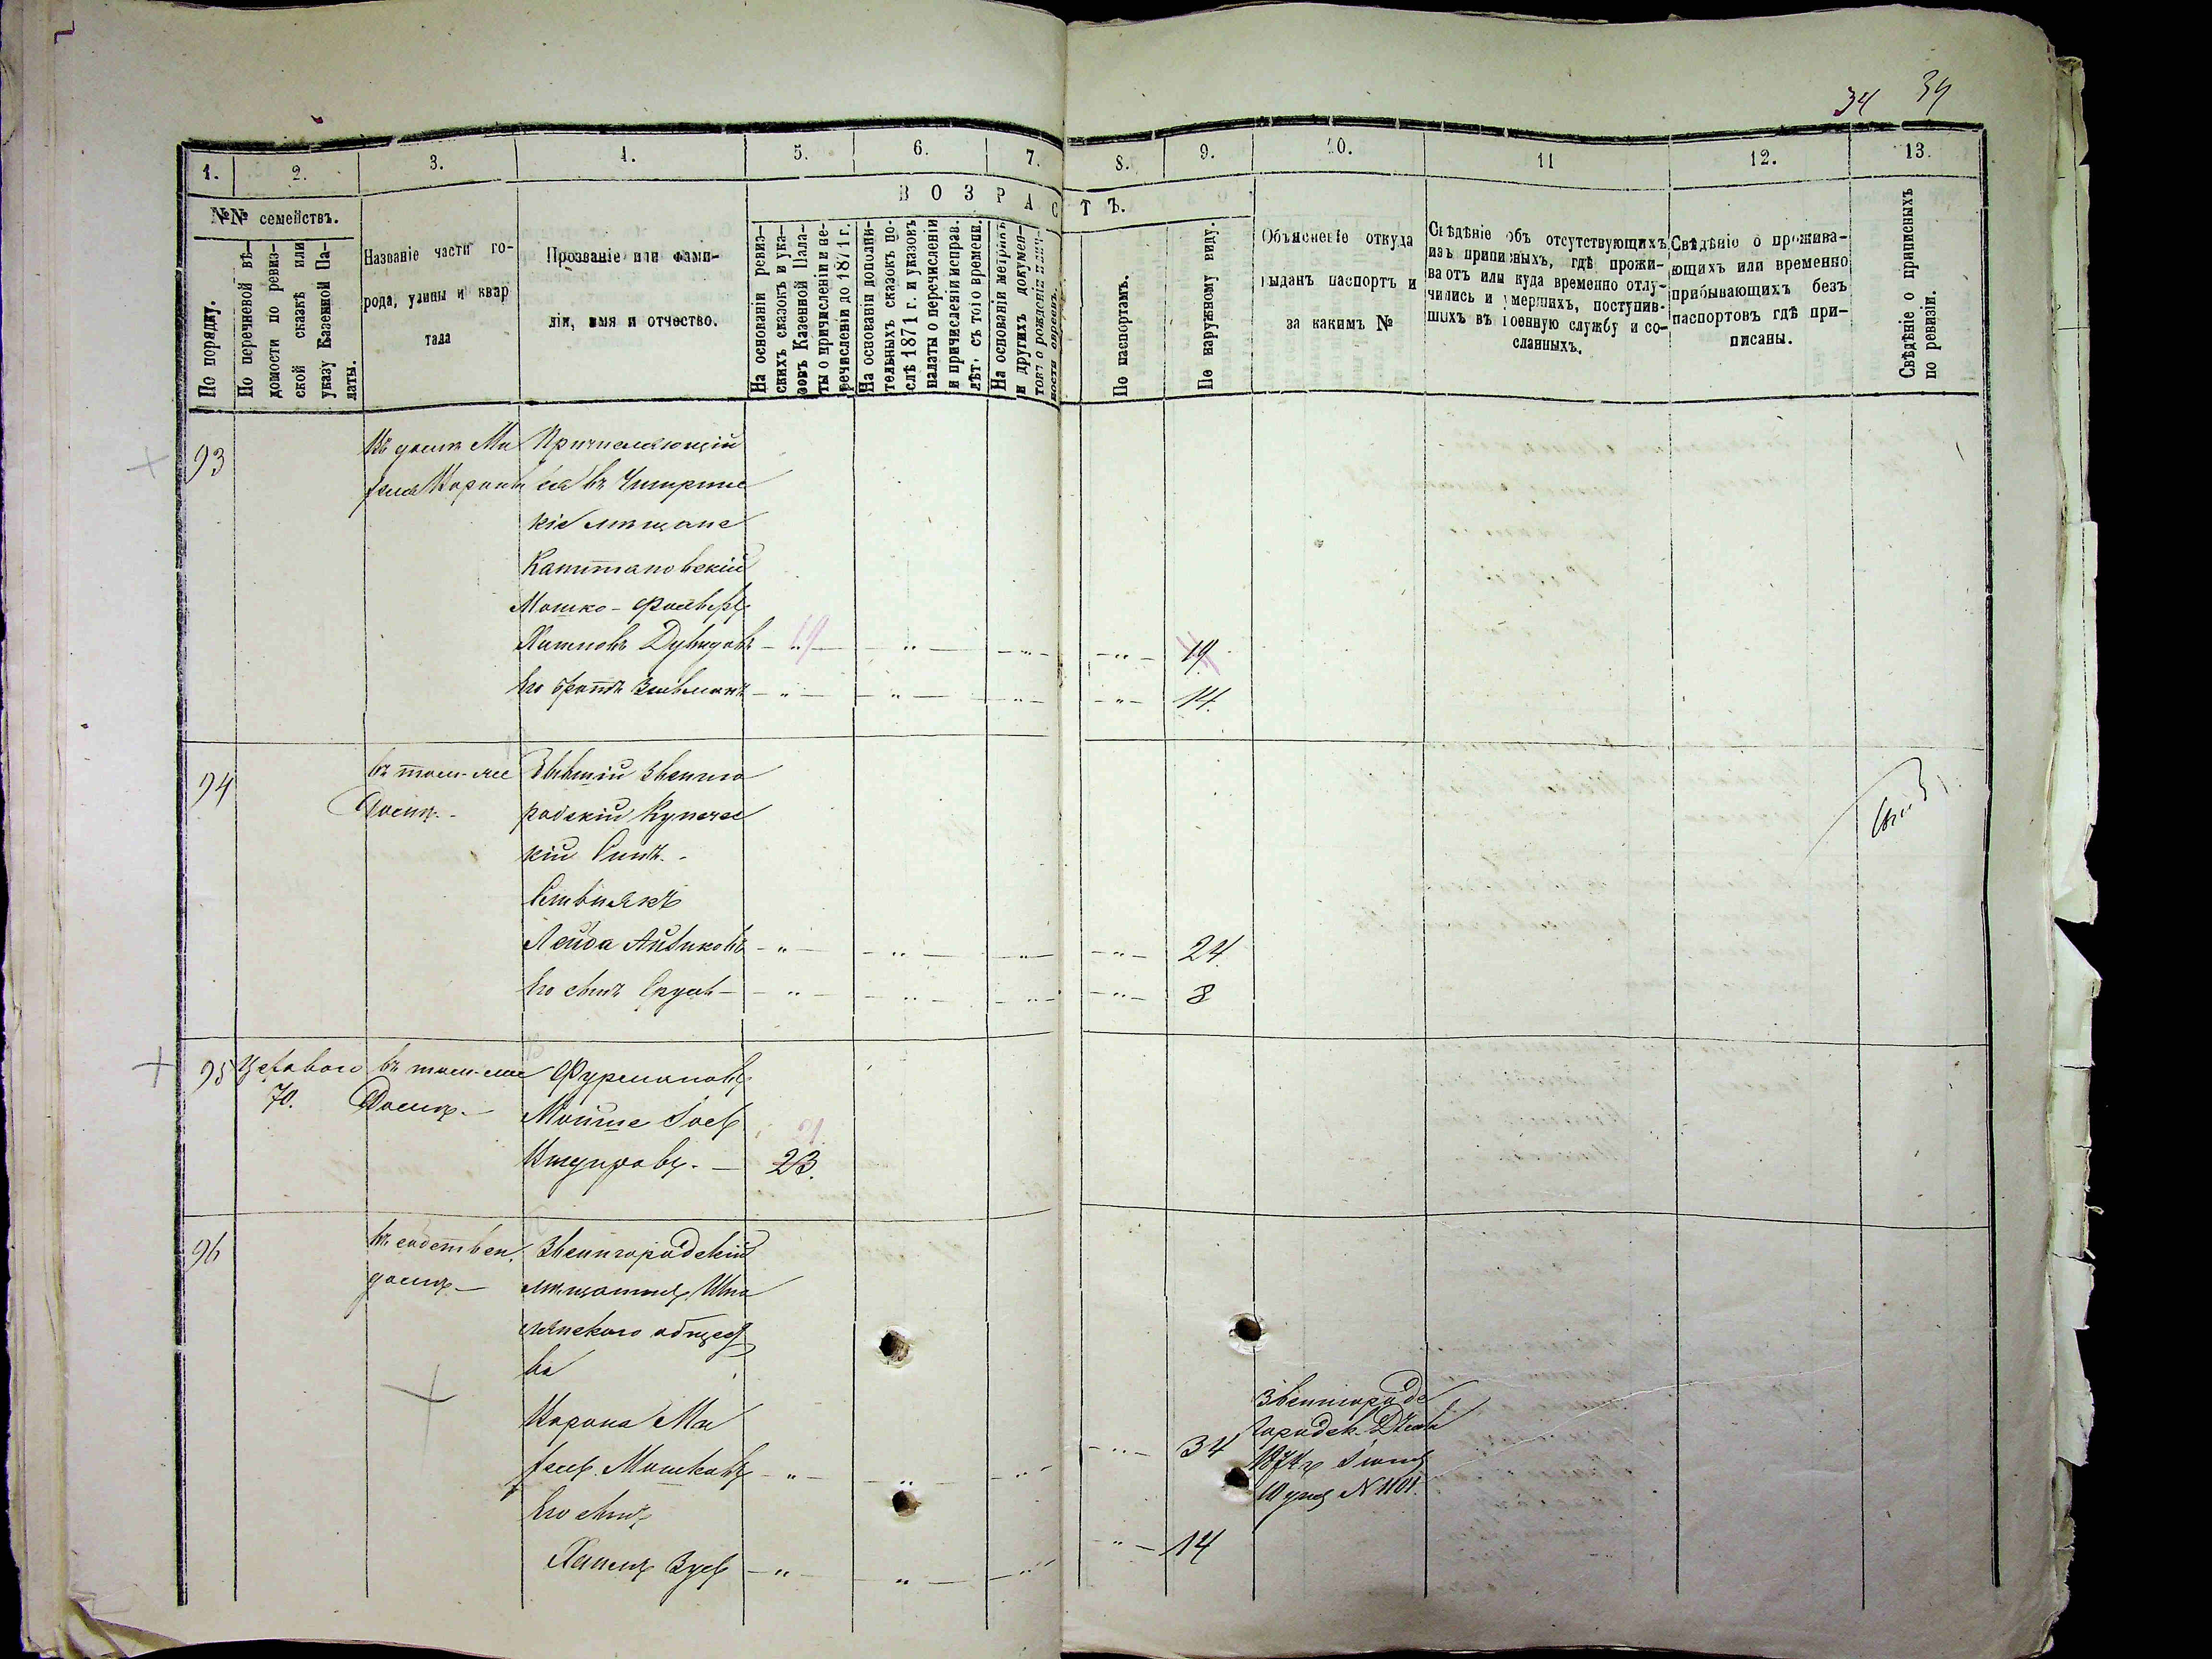 34 39
1. 2. 3. 4. 5. 6. 7. 8. 9. 10. 11 12. 13.
ВОЗРАСТЪ.
№№ семействъ.
По порядку.
По перечневой вѣ-
домости по ревиз-
ской сказкѣ или
указу Казенной Па-
латы.
Названіе части го-
рода, улицы и квар
тала
Прозваніе или фами-
лія, имя и отчество.
На основаніи ревиз-
скихъ сказокъ и ука-
зовъ Казенной Пала-
ты о причисленіи и пе-
речисленіи до 1871 г.
На основаніи дополни-
тельныхъ сказокъ по-
слѣ 1871 г. и указовъ
палаты о перечисленіи
и причисленіи исправ.
лѣт. съ того времени.
На основаніи метрикъ
и другихъ докумен-
товъ о рожденіи
По паспортамъ.
По наружному виду.
Объясненіе откуда
выданъ паспортъ и
за какимъ №
Свѣдѣніе объ отсутствующихъ
изъ приписныхъ, гдѣ прожи-
ваютъ или куда временно отлу-
чились и умершихъ, поступив-
шихъ въ военную службу и со-
сланныхъ.
Свѣдѣніе о прожива-
ющихъ или временно
прибывающихъ безъ
паспортовъ гдѣ при-
писаны.
Свѣдѣніе о приписныхъ
по ревизіи.
93 Въ домѣ Причисляющій
ся въ Чигирине
кіе мѣщане
Капитановскій
Мошко-
Дувидовъ 19 19
Его братъ 14.
94 въ томъ-же Бывшій Звениго
Домѣ. родскій Купечес
кій Сынъ.
Лейба 24
Его сынъ Сруль 8
95 въ томъ-же Фурмановъ
70. Домѣ. Мойше Іос
21
23.
96 въ собствен. Звенигородскій
домѣ мѣщанинъ Шпо
лянскаго общест
ва
Корона
Мошковъ 34
Звенигородс
Городск.
1874 г.
№ 1101.
Его сынъ
Хаимъ 14